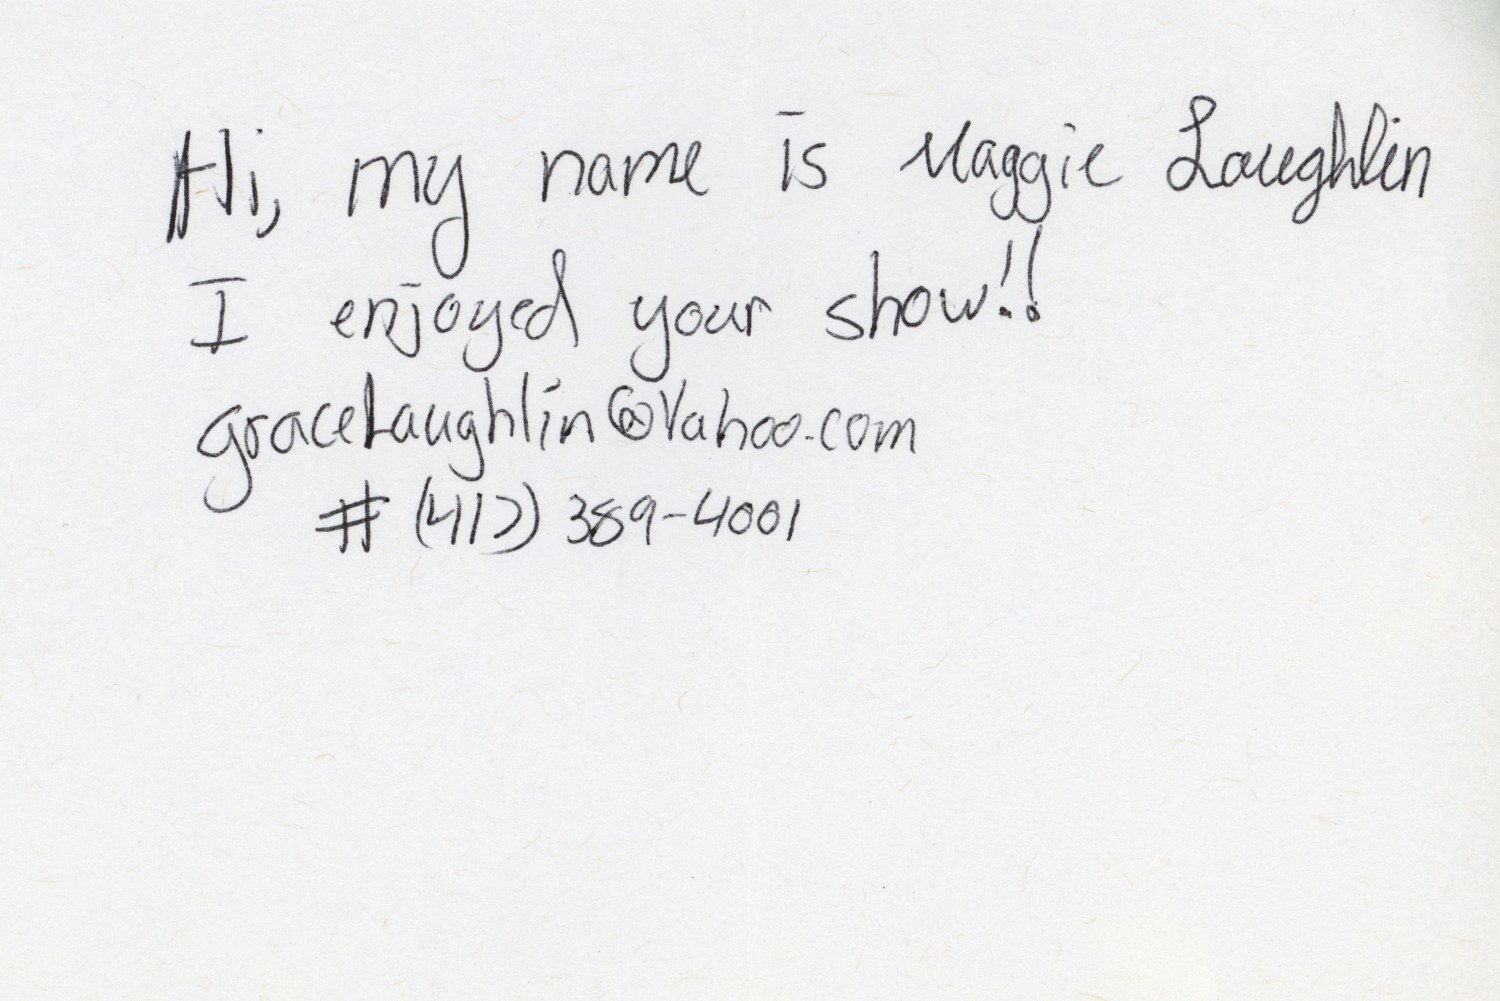 Hi, my name is Maggie Laughlin
I enjoyed your show!!
graceLaughlin@Yahoo.com
# (412) 389-4001